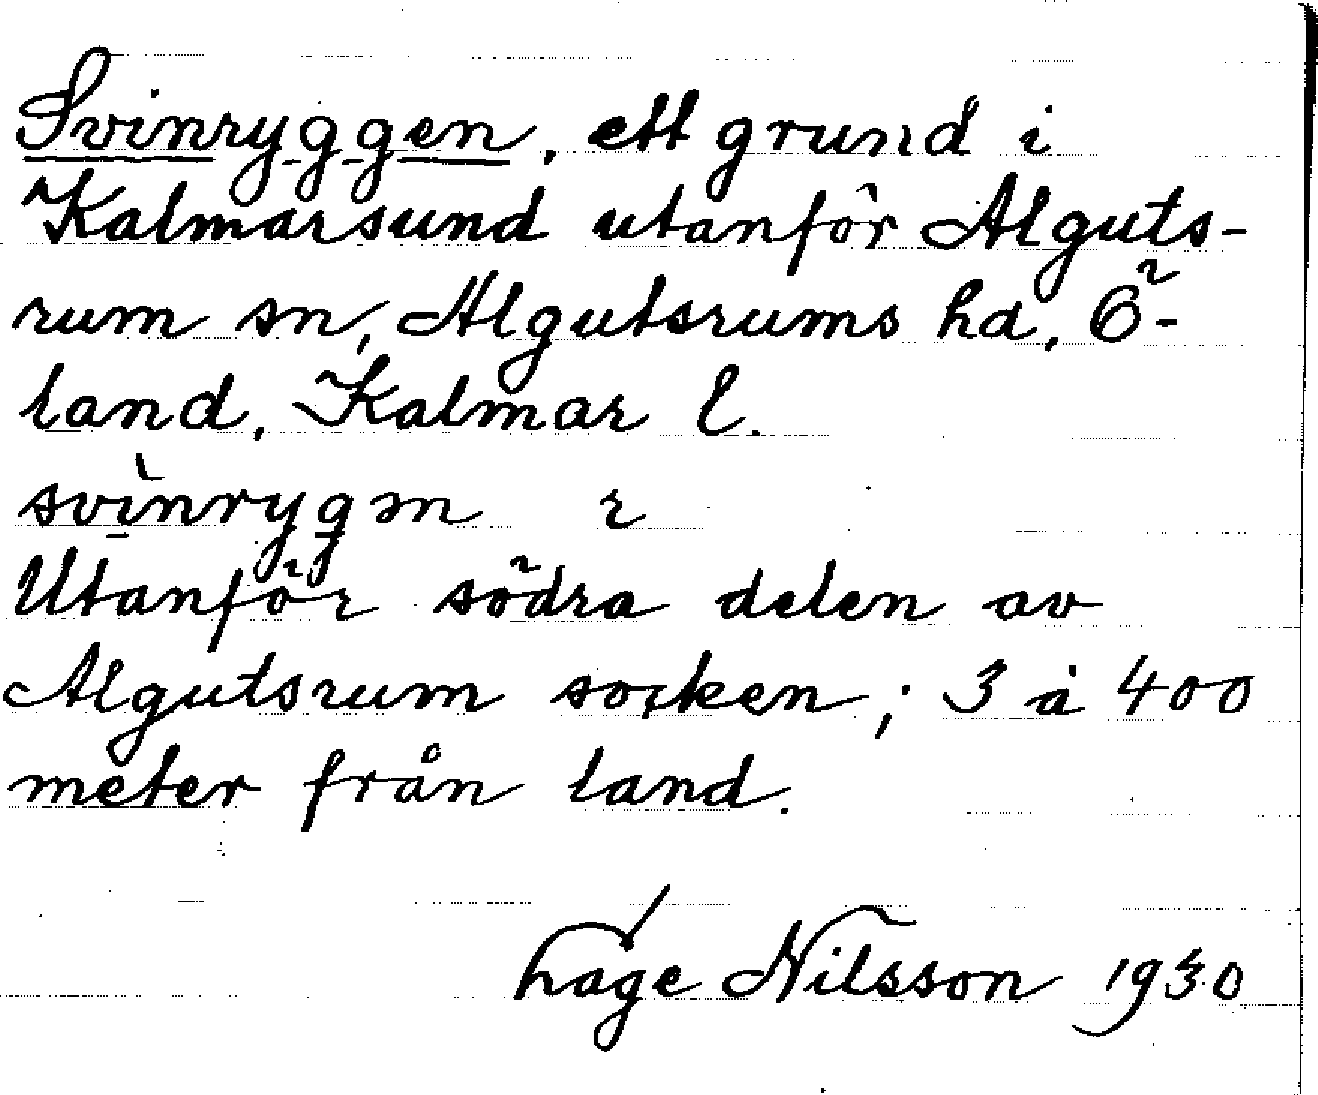 Svinryggen, ett grund i
Kalmarsund utanför Alguts-
rum sn, Algutsrums hd, Ö-
land, Kalmar l.
svìnrygən r
Utanför södra delen av
Algutsrum socken; 3 à 400
meter från land.
Hage Nilsson 1930